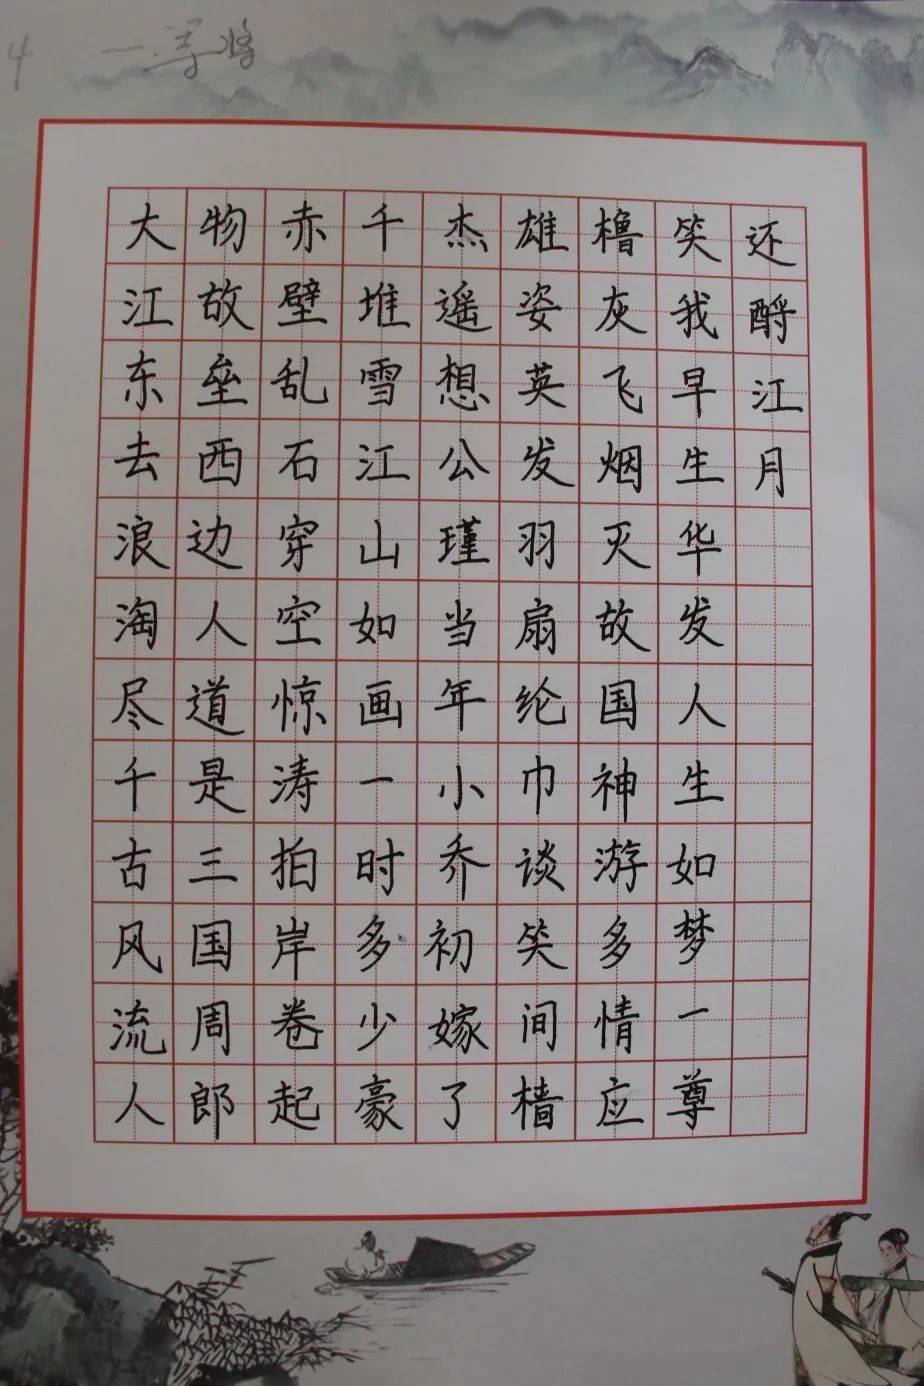 4
大江东去浪淘尽千古风流人
物故垒西边人道是三国周郎
赤壁乱石穿空惊涛拍岸卷起
千堆雪江山如画一时多少豪
杰遥想公瑾当年小乔初嫁了
雄姿英发羽扇纶巾谈笑间樯
橹灰飞烟灭故国神游多情应
笑我早生华发人生如梦一尊
还酹江月